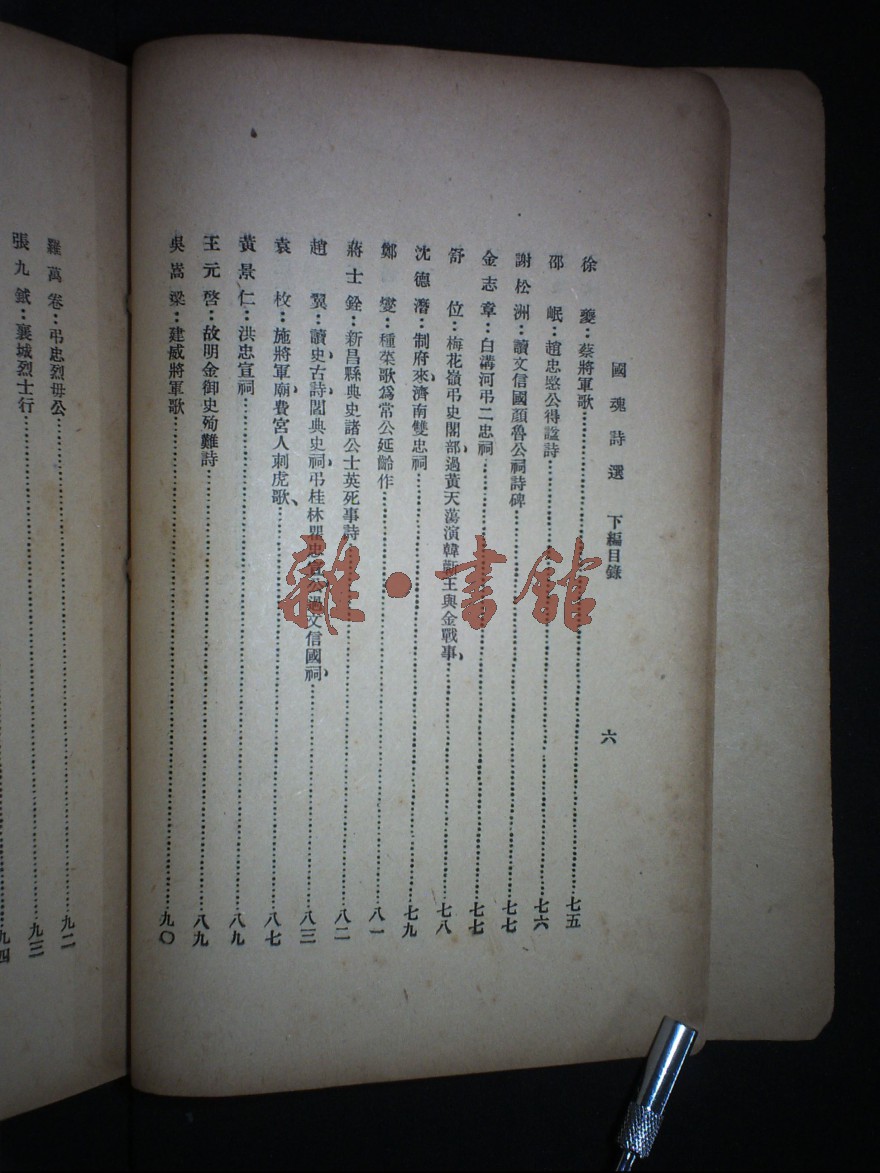 國魂詩選 下編目錄 六
徐夔：蔡將軍歌……七五
邵岷：趙忠愍公得諡詩……七六
謝松洲：讀文信國顏魯公祠詩碑……七七
金志章：白溝河弔二忠祠……七七
舒位：梅花嶺弔史閣部，過黃天蕩演韓蘄王與金戰事，……七八
沈德潛：制府來，濟南雙忠祠……七九
鄭燮：種菜歌爲常公延齡作……八一
蔣士銓：新昌縣典史諸公士英死事詩……八二
趙翼：讀史古詩，閻典史祠，弔桂林瞿忠宣公，過文信國祠，……八三
袁枚：施將軍廟，費宮人刺虎歌、……八七
黃景仁：洪忠宣祠……八九
王元啓：故明金御史殉難詩……八九
吳嵩梁：建威將軍歌……九〇
羅萬卷：弔忠烈毋公……九二
張九鉞：襄城烈士行……九三
……九四
雜·書館